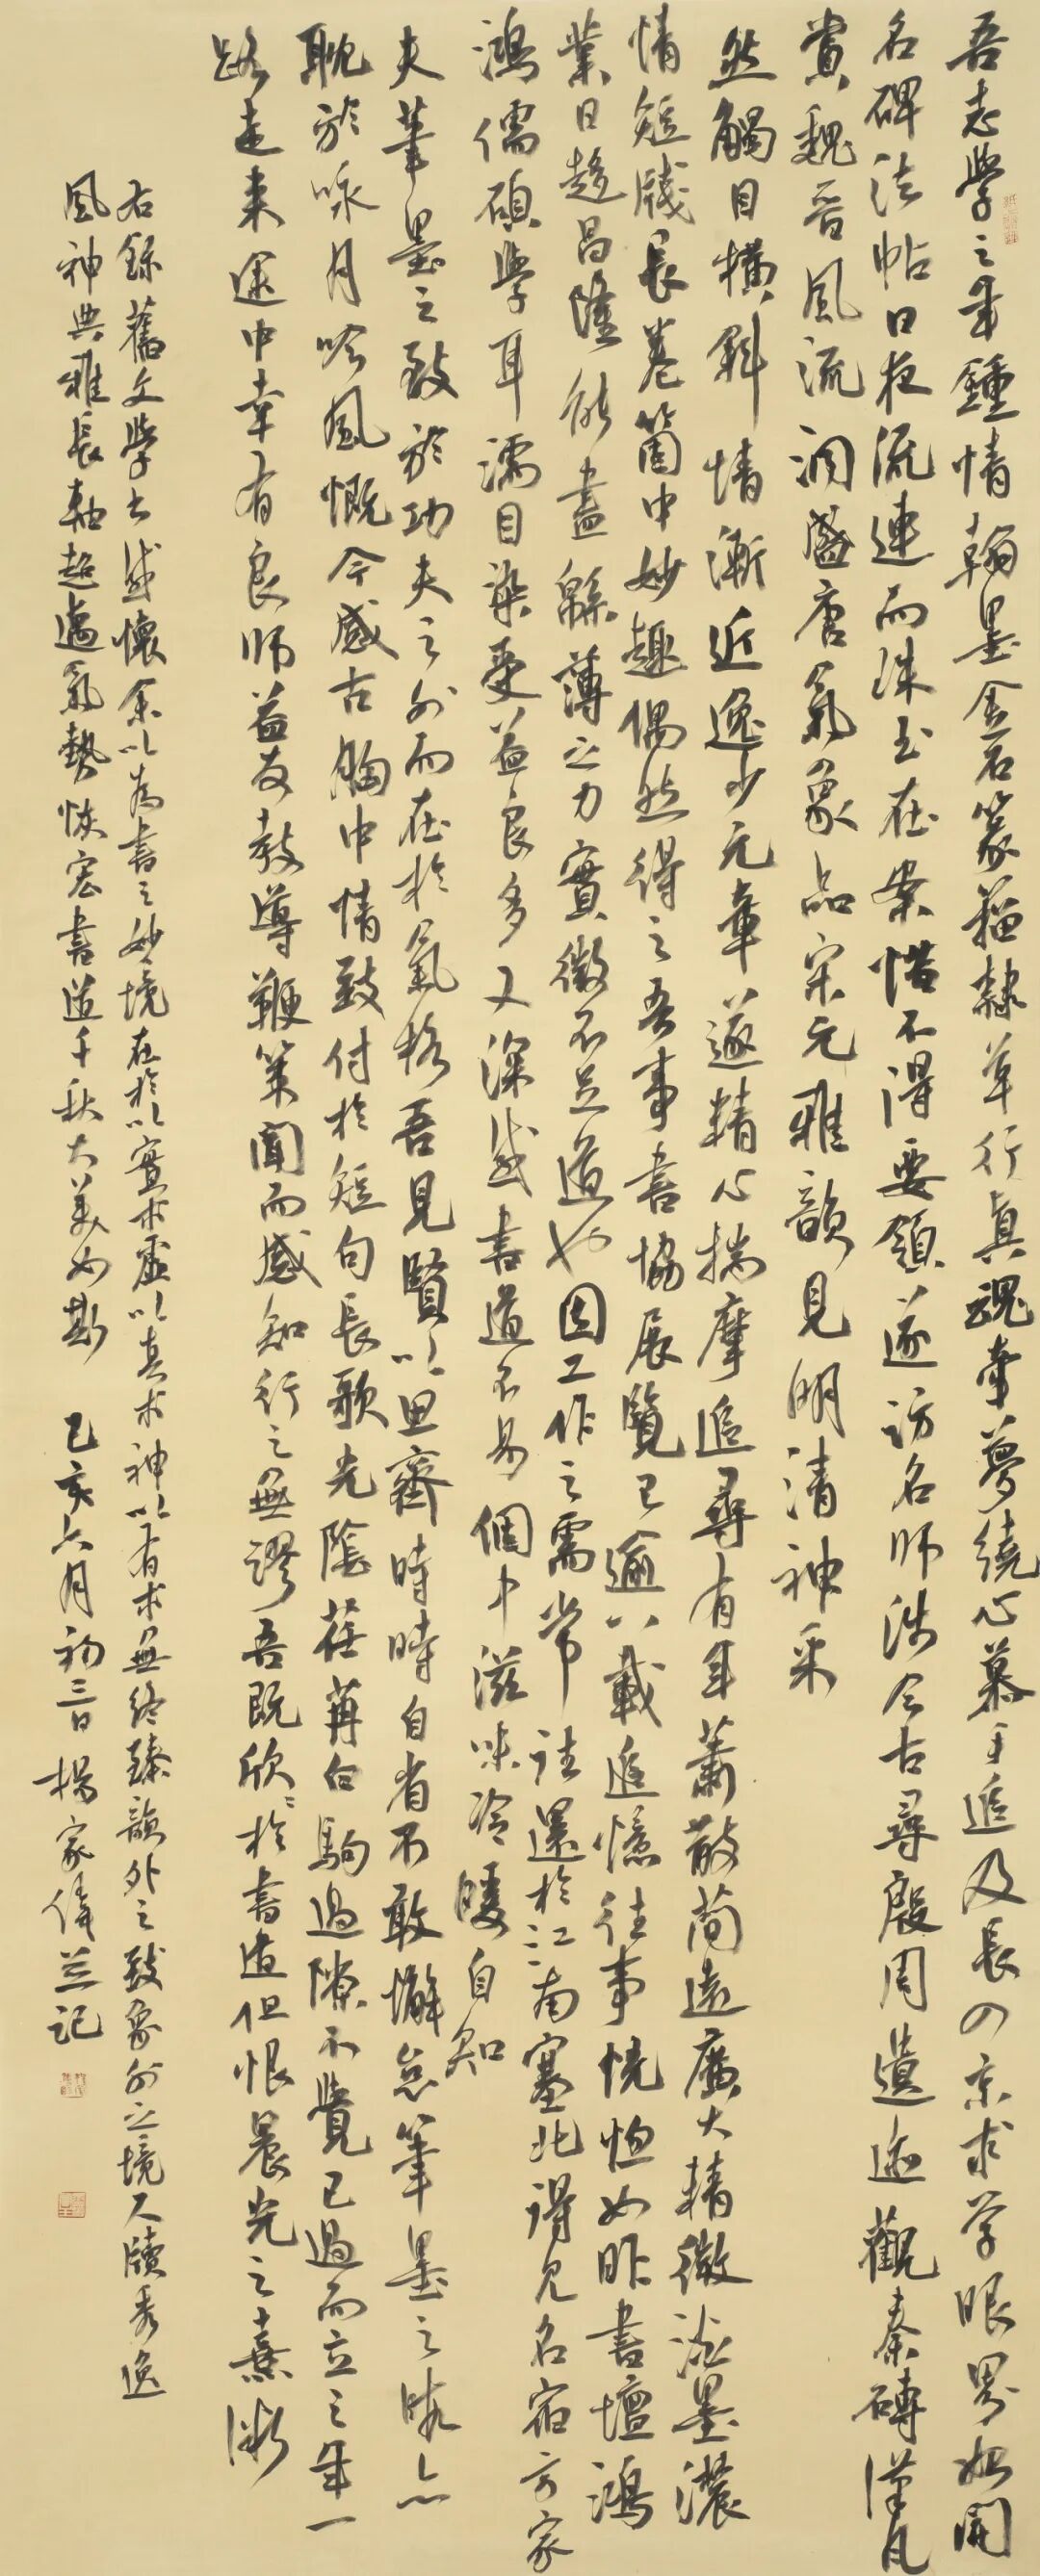 吾志學之年鍾情翰墨金石篆籀隸草行真魂牽夢繞心慕手追及長入京求学眼界始開
名碑法帖日夜流連而珠玉在案惜不得要領遂訪名師涉今古尋殷周遺迹觀秦磚漢瓦
賞魏晋風流潤盛唐氣象品宋元雅韻見明清神采
然觸目橫斜情漸近逸少元章遂精心揣摩追尋有年蕭散簡遠廣大精微淡墨濃
情短牋長卷箇中妙趣偶然得之吾事書協展覽已逾八載追憶往事恍惚如昨書壇鴻
業日趨昌隆能盡緜薄之力實微不足道也因工作之需常往還於江南塞北得見名宿方家
鴻儒碩學耳濡目染受益良多又深感書道不易個中滋味冷暖自知
夫筆墨之致於功夫之外而在於氣格吾見賢以思齊時時自省不敢懈怠筆墨之暇亦
耽於咏月吟風慨今感古胸中情致付於短句長歌光陰荏苒白駒過隙不覺已過而立之年一
路走来途中幸有良師益友教導鞭策聞而感知行之無謬吾既欣欣於書道但恨晨光之熹微
右録舊文學書感懷余以為書之妙境在於以實求虛以真求神以有求無終臻韻外之致象外之境尺牘秀逸
風神典雅長軸超邁氣勢恢宏書道千秋大美如斯 己亥六月初三日楊家偉并記